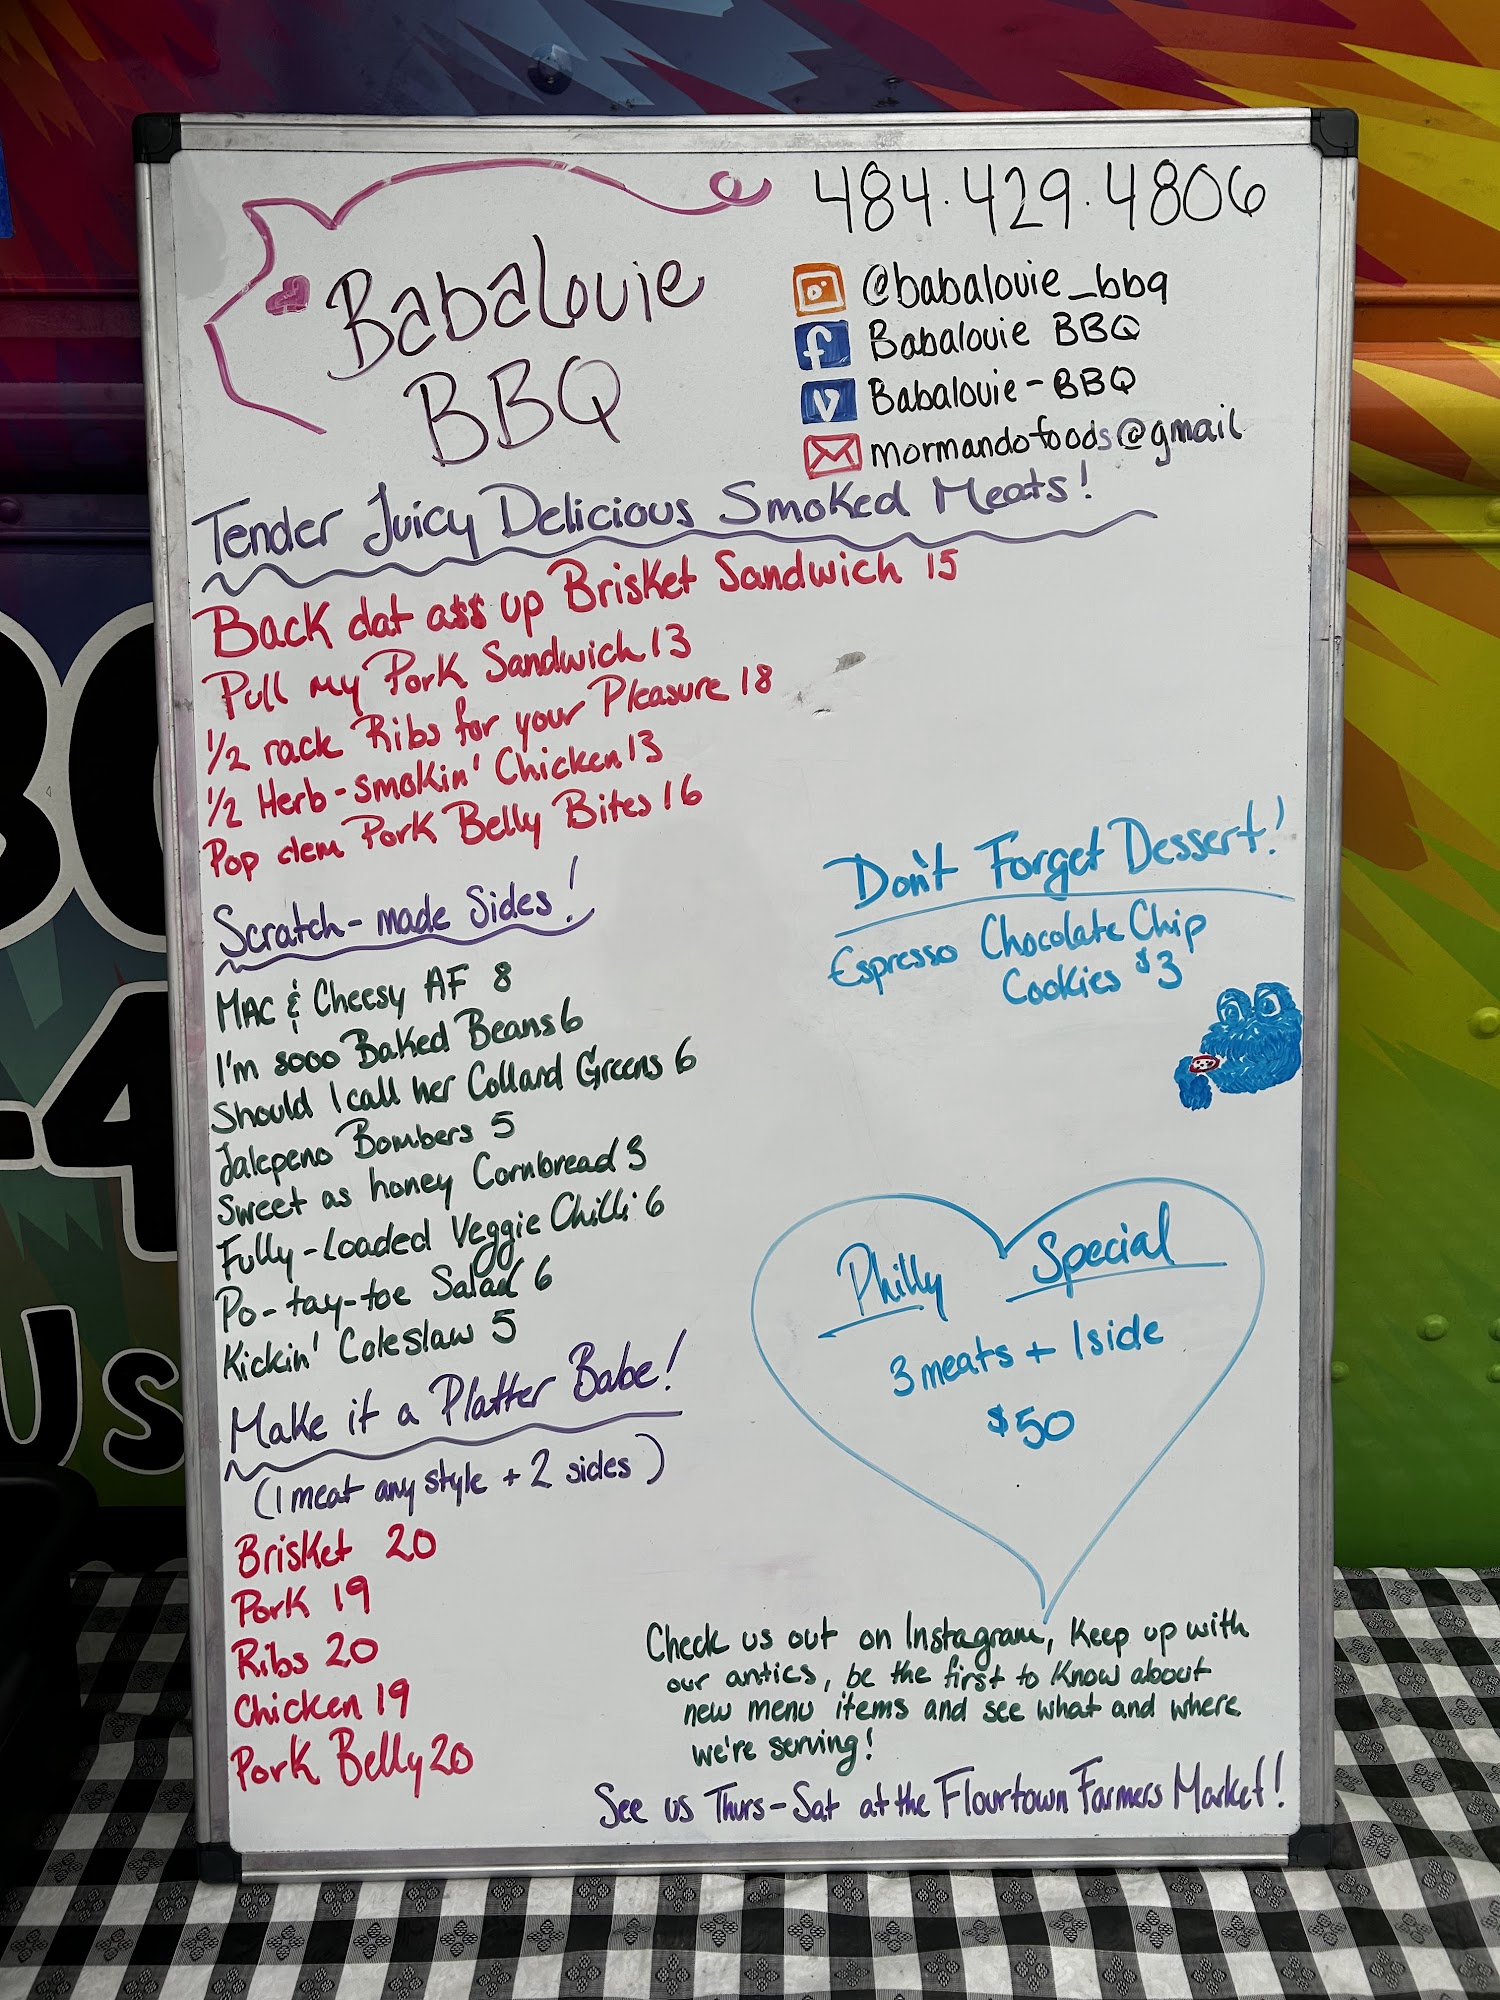 Babalouie
BBQ
484.429.4806
@babalouie_bbq
f Babalouie BBQ
V Babalouie-BBQ
mormandofoods@gmail
Tender Juicy Delicious Smoked Meats!
Back dat a$$ up Brisket Sandwich 15
Pull my Pork Sandwich 13
1/2 rack Ribs for your Pleasure 18
1/2 Herb-smokin' Chicken 13
Pop dem Pork Belly Bites 16
Scratch-made Sides!
Mac & Cheesy AF 8
I'm sooo Baked Beans 6
Should I call her Collard Greens 6
Jalepeno Bombers 5
Sweet as honey Cornbread 3
Fully-Loaded Veggie Chilli 6
Po-tay-toe Salad 6
Kickin' Coleslaw 5
Make it a Platter Babe!
(1 meat any style + 2 sides)
Brisket 20
Pork 19
Ribs 20
Chicken 19
Pork Belly 20
Don't Forget Dessert!
Espresso Chocolate Chip
Cookies $3
Philly Special
3 meats + 1 side
$50
Check us out on Instagram, Keep up with
our antics, be the first to know about
new menu items and see what and where
we're serving!
See us Thurs-Sat at the Flourtown Farmers Market!
-4
us